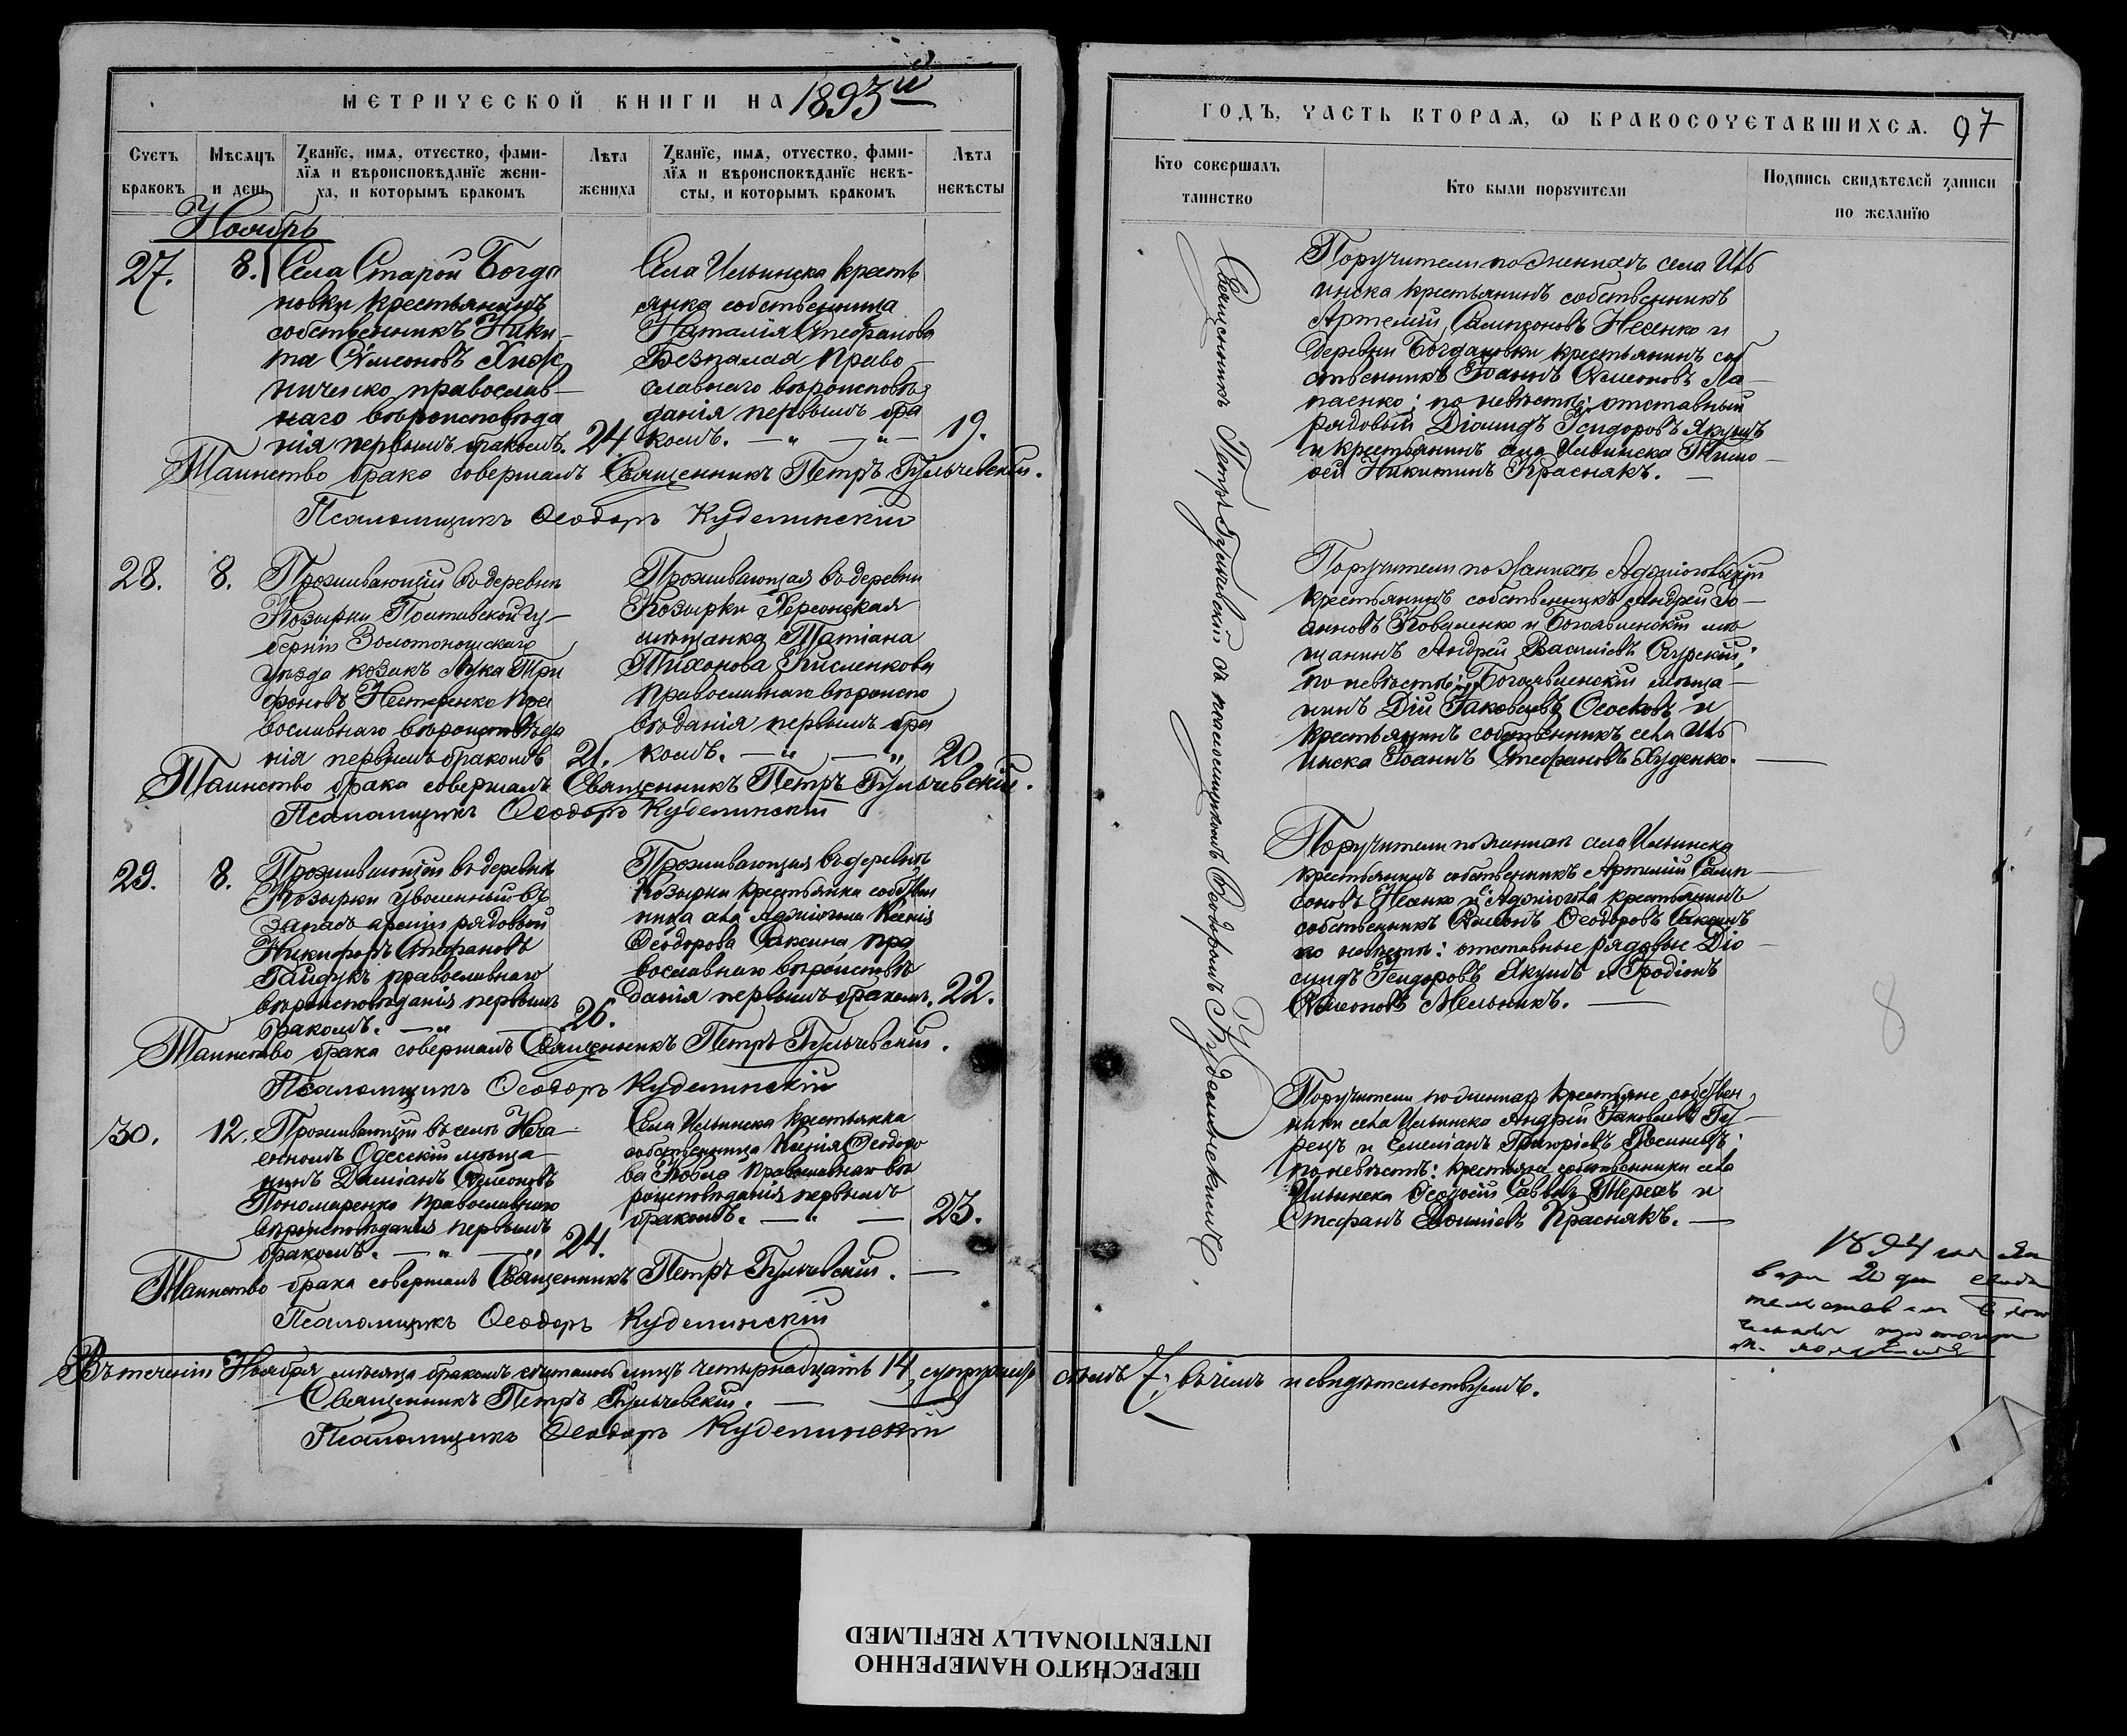 МЕТРИЧЕСКОЙ КНИГИ НА 1893й
Счетъ браковъ
Мѣсяцъ и день
Званїе, имя, отчество, фамилїя и вѣроисповѣданїе жениха, и которымъ бракомъ
Лѣта жениха
Званїе, имя, отчество, фамилїя и вѣроисповѣданїе невѣсты, и которымъ бракомъ
Лѣта невѣсты
Ноябрь
27.
8.
Села Старой Богда
новки крестьянинъ
собственникъ Ники-
та Симеоновъ
ниченко православ-
наго вѣроисповѣда
нія первымъ бракомъ.
24.
Села Ильинска кресть
янка собственница
Наталія Стефанова
Безпалая право-
славнаго вѣроисповѣ
данія первымъ бра
комъ. — „ — „ —
19.
Таинство брака совершалъ Священникъ Петръ Гульчевскій.
Псаломщикъ Ѳеодоръ Куделинскій
28.
8.
Проживающій въ деревнѣ
Козырки Полтавской гу-
берніи Золотоношскаго
уѣзда козакъ Лука Три
фоновъ Нестеренко пра
вославнаго вѣроисповѣда
нія первымъ бракомъ
21.
Проживающая въ деревни
Козырки Херсонская
мѣщанка Татіана
Тихонова Кисленкова
православнаго вѣроиспо
вѣданія первымъ бра
комъ. — „ — „
20.
Таинство брака совершалъ Священникъ Петръ Гульчевскій.
Псаломщикъ Ѳеодоръ Куделинскій
29.
8.
Проживающій въ деревнѣ
Козырки уволенный въ
запасъ арміи рядовой
Никифоръ Стефановъ
Гайдукъ православнаго
вѣроисповѣданія первымъ
бракомъ. — „ —
26.
Проживающая въ деревнѣ
Козырки крестьянка собствен
ница села Аджіогола Ксенія
Ѳеодорова Саксина пра
вославнаго вѣроисповѣ
данія первымъ бракомъ.
22.
Таинство брака совершалъ Священникъ Петръ Гульчевскій.
Псаломщикъ Ѳеодоръ Куделинскій
30.
12.
Проживающій въ селѣ Неча
еномъ Одесскій мѣща
нинъ Даміанъ Симеоновъ
Пономаренко православнаго
вѣроисповѣданія первымъ
бракомъ. — „ — „
24.
Села Ильинска крестьянка
собственница Ѳеодоро
ва Кобца православнаго вѣ
роисповѣданія первымъ
бракомъ. — „ —
23.
Таинство брака совершалъ Священникъ Петръ Гульчевскій. —
Псаломщикъ Ѳеодоръ Куделинскій
Въ теченіи Ноября мѣсяца бракомъ сочеталось лицъ четырнадцать 14, супружествъ
Священникъ Петръ Гульчевскій. —
Псаломщикъ Ѳеодоръ Куделинскій
ГОДЪ, ЧАСТЬ ВТОРАЯ, Ѡ БРАКОСОЧЕТАВШИХСЯ. 97
Кто совершалъ таинство
Кто были поручители
Подпись свидѣтелей записи по желанїю
Священникъ Петръ Гульчевскій съ псаломщикомъ Ѳеодоромъ Куделинскимъ.
Поручители по женихѣ села Иль
инска крестьянинъ собственникъ
Артемій Сампсоновъ Несенко и
деревни Богдановки крестьянинъ соб
ственникъ Іоаннъ Симеоновъ Ла-
паенко; по невѣстѣ: отставный
рядовый Діомидъ Ісидоровъ Якушъ
и крестьянинъ села Ильинска Тимо-
ѳей Никитинъ Краснякъ. —
Поручители по женихѣ Аджіогольскій
крестьянинъ собственникъ Андрей Іо-
анновъ Коваленко и Богоявленскій мѣ
щанинъ Андрей Василіевъ Курскій;
по невѣстѣ: Богоявленскій мѣща-
нинъ Дій Іаковлевъ Ососковъ и
крестьянинъ собственникъ села Иль
инска Іоаннъ Стефановъ Худенко. —
Поручители по женихѣ села Ильинска
крестьянинъ собственникъ Артемій Самп-
соновъ Несенко и Аджіогола крестьянинъ
собственникъ Симеонъ Ѳеодоровъ Саксинъ
по невѣстѣ: отставные рядовые Діо-
мидъ Ісидоровъ Якушъ и Іродіонъ
Симеоновъ Мельникъ. —
Поручители по женихѣ крестьяне собствен
ники села Ильинска Андрей Іаковлевъ Гу-
рецъ и Емеліанъ Григоріевъ Росинецъ;
по невѣстѣ: крестьяне собственники села
Ильинска Ѳеодосій Саввинъ Терехъ и
Стефанъ Краснякъ. —
8
1894 года Ян
варя 20 дня свидѣ
семь 7; въ чемъ и свидѣтельствуемъ.
ПЕРЕСНЯТО НАМЕРЕННО
INTENTIONALLY REFILMED